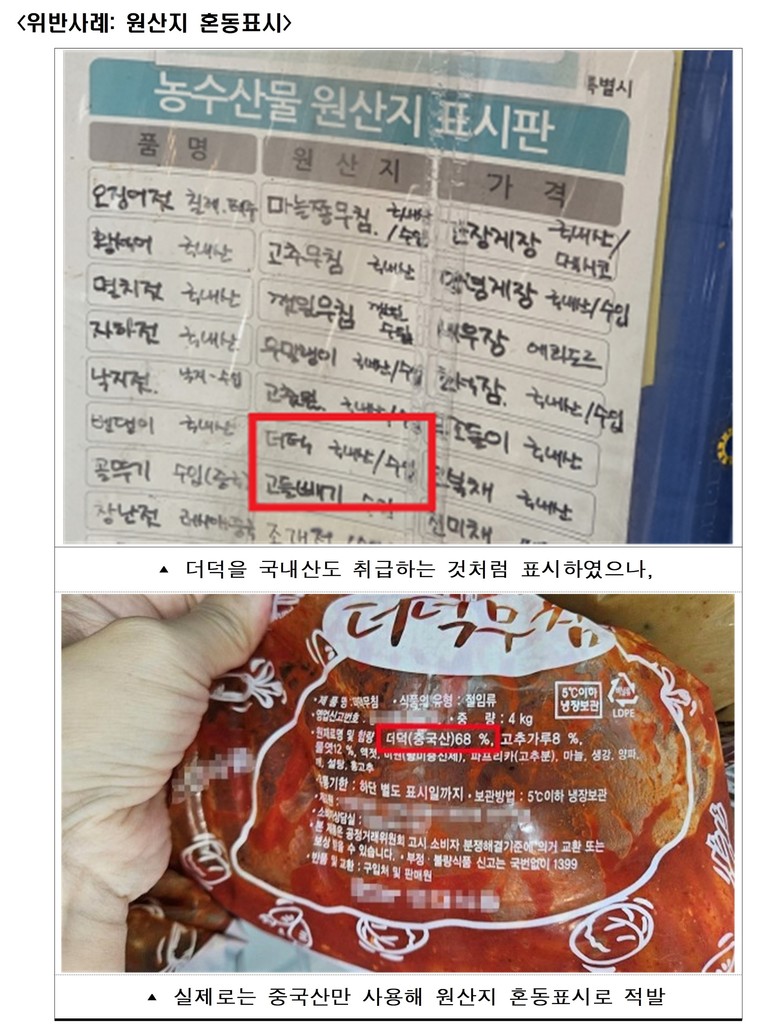 <위반사례: 원산지 혼동표시>
특별시
농수산물 원산지 표시판
품 명 원 산 지 가 격
오징어젓 칠레.페루 마늘쫑무침 국내산/수입 간장게장 국내산/
황석어 국내산 고추무침 국내산
멸치젓 국내산 깻잎무침 양념게장 국내산/수입
자하젓 국내산 무말랭이 국내산/수입 새우장 에콰도르
낙지젓 낙지-수입 국내산/수입
밴댕이 국내산 더덕 국내산/수입 국내산
꼴뚜기 수입(중국) 고들빼기 국내산
창난젓 조개젓 진미채
▲ 더덕을 국내산도 취급하는 것처럼 표시하였으나,
더덕무침
•제 품 명 : •식품의 유형 : 절임류
•영업신고번호. 중 량 : 4 kg
•원재료명 및 함량 더덕(중국산)68 %, 고춧가루8 %,
물엿12 %, 액젓, 파프리카(고추분), 마늘, 생강, 양파,
깨, 설탕, 홍고추
통기한 : 하단 별도 표시일까지 •보관방법 : 5℃이하 냉장보관
•소비자상담실 :
•본 제품은 공정거래위원회 고시 소비자 분쟁해결기준에 의거 교환 또는
보상 받을 수 있습니다. •부정·불량식품 신고는 국번없이 1399
•반품 및 교환 : 구입처 및 판매원
5℃이하
냉장보관
비닐류
LDPE
▲ 실제로는 중국산만 사용해 원산지 혼동표시로 적발